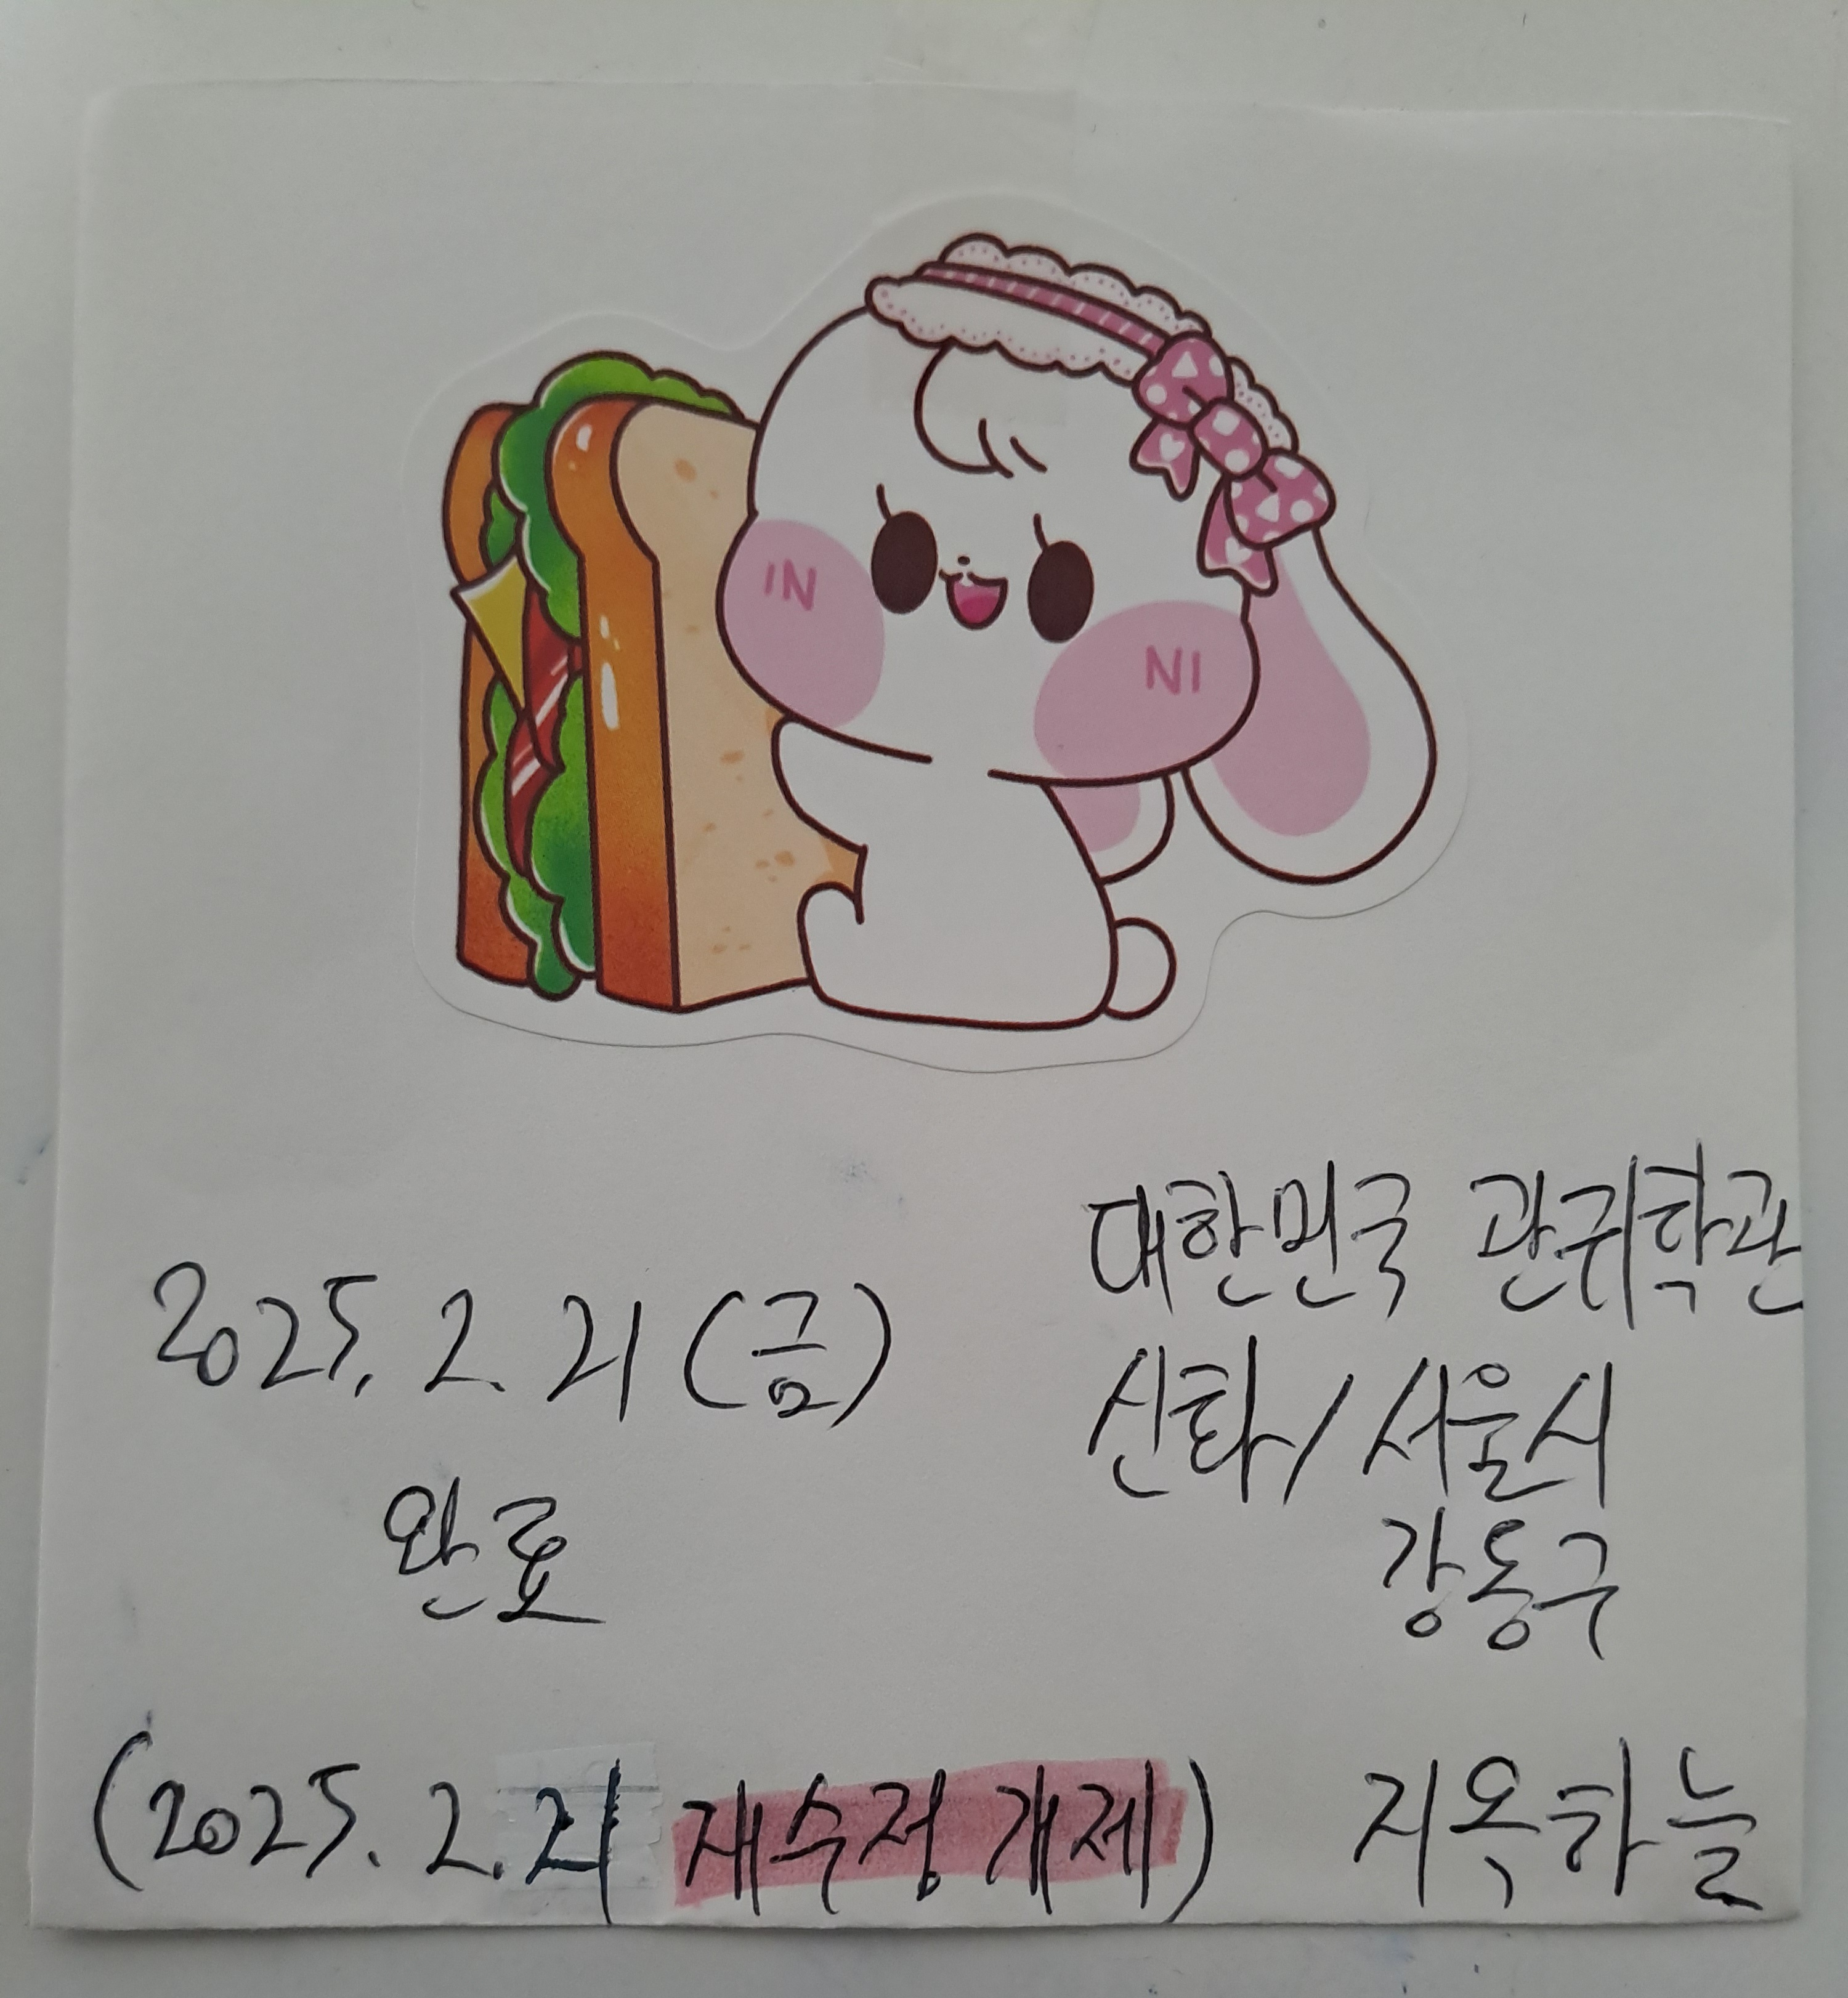 IN NI
2025. 2. 21 (금)
완료
대한민국 관귀학관
신화 / 서울시
강동구
(2025. 2. 21 재수정 개제) 지옥하늘